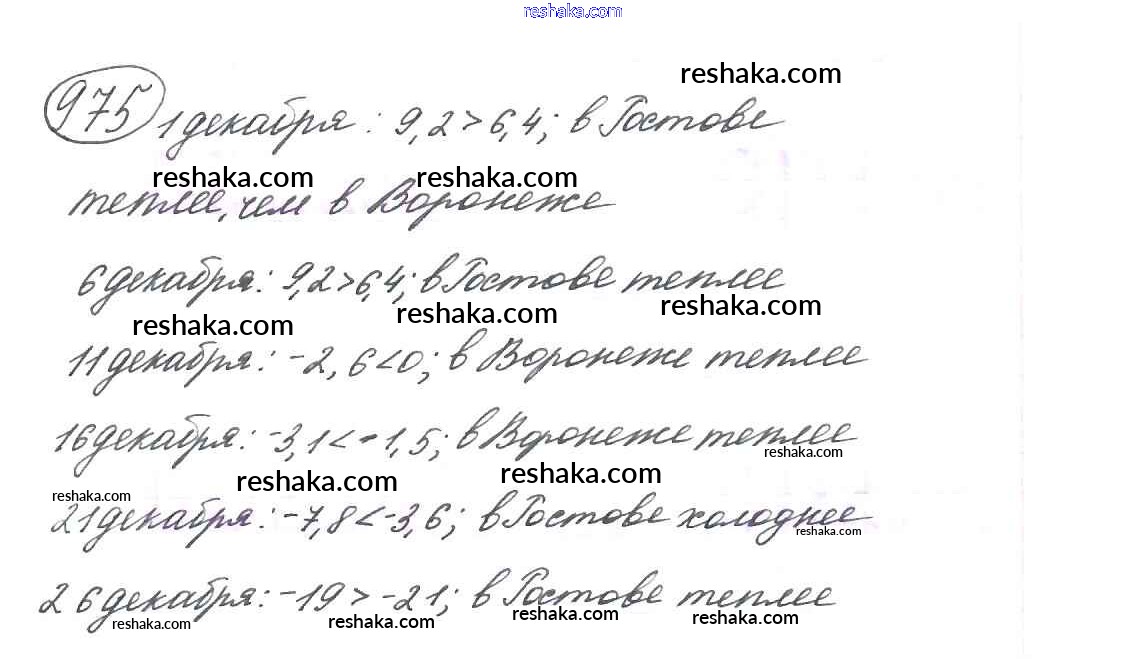 reshaka.com
reshaka.com
975 1 декабря: 9,2>6,4; в Ростове
reshaka.com reshaka.com
теплее, чем в Воронеже
6 декабря: 9,2>6,4; в Ростове теплее
reshaka.com reshaka.com reshaka.com
11 декабря: -2,6<0; в Воронеже теплее
16 декабря: -3,1<-1,5; в Воронеже теплее
reshaka.com reshaka.com reshaka.com
reshaka.com
21 декабря: -7,8<-3,6; в Ростове холоднее
reshaka.com
26 декабря: -19>-21; в Ростове теплее
reshaka.com reshaka.com reshaka.com reshaka.com